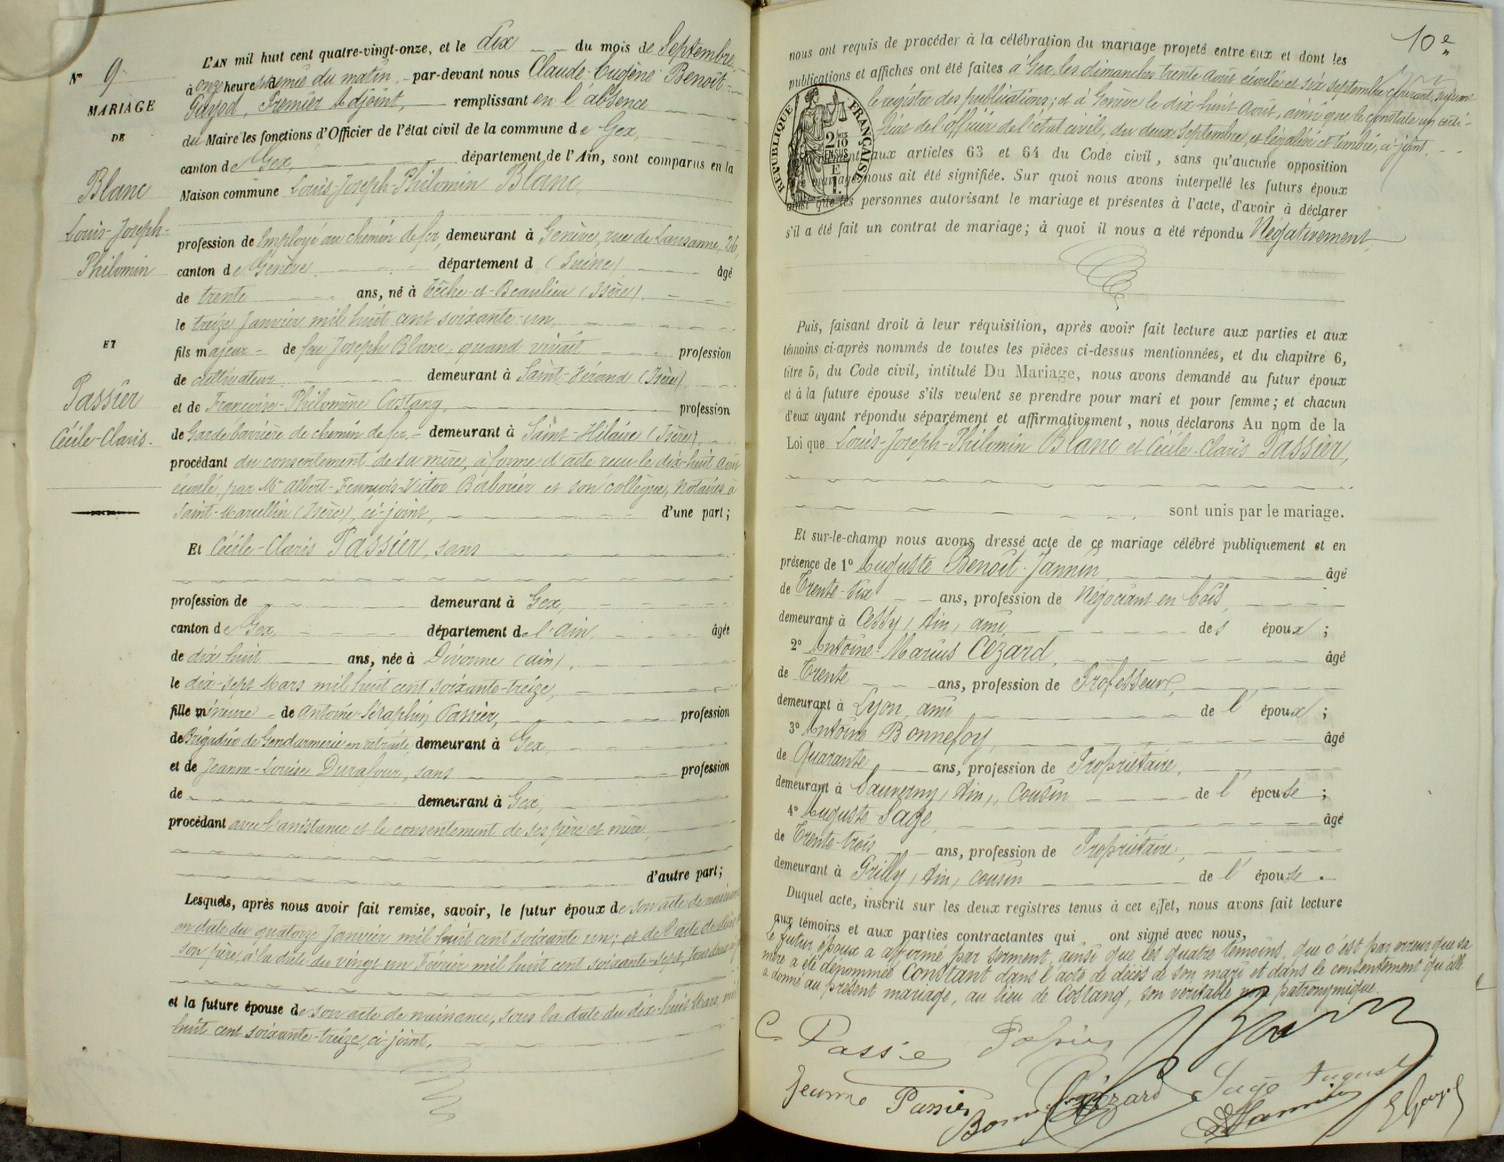 N° 9
MARIAGE
DE
Blanc
Louis-Joseph-
Philomin
ET
Passier
Cécile-Claris.
L'AN mil huit cent quatre-vingt-onze, et le dix du mois de Septembre
à onze heures du matin, par-devant nous Claude-Eugène Benoit-
Guyod, Premier Adjoint, remplissant en l'absence
du Maire les fonctions d'Officier de l'état civil de la commune de Gex,
canton de Gex, département de l'Ain, sont comparus en la
Maison commune Louis-Joseph-Philomin Blanc,
profession de Employé au chemin de fer, demeurant à Genève, rue de Lausanne, 26,
canton de Genève département d (Suisse) âgé
de trente ans, né à Têche-et-Beaulieu (Isère),
le treize Janvier mil huit cent soixante-un,
fils majeur de feu Joseph Blanc, quand vivait profession
de cultivateur demeurant à Saint-Vérand (Isère),
et de Françoise-Philomène Costang, profession
de Garde barrière de chemin de fer, demeurant à Saint-Hilaire (Isère),
procédant du consentement de sa mère, à forme d'acte reçu le dix-huit Août
écoulé, par Me Albert-François-Victor Barbouier et son collègue, Notaires à
Saint-Marcellin (Isère), ci-joint, d'une part;
Et Cécile-Claris Passier, sans
profession de demeurant à Gex,
canton de Gex, département de l'Ain, âgée
de dix huit ans, née à Divonne (Ain),
le dix-sept Mars mil huit cent soixante-treize,
fille mineure de Antoine-Séraphin Passier, profession
de Brigadier de Gendarmerie en retraite, demeurant à Gex,
et de Jeanne-Louise Durafour, sans profession
de demeurant à Gex,
procédant avec l'assistance et le consentement de ses père et mère,
d'autre part;
Lesquels, après nous avoir fait remise, savoir, le futur époux de son acte de naissance
en date du quatorze Janvier mil huit cent soixante un; et de l'acte de décès de
son père, à la date du vingt-un Février mil huit cent soixante-sept,
et la future épouse de son acte de naissance, sous la date du dix-huit Mars mil
huit cent soixante-treize, ci-joint.
10e
nous ont requis de procéder à la célébration du mariage projeté entre eux et dont les
publications et affiches ont été faites à Gex, les dimanches trente Août écoulé et six septembre courant, suivant
le registre des publications; et à Genève le dix-huit Août, ainsi que le constate un certi-
ficat de l'officier de l'état civil, du deux Septembre, et légalisé et timbré, ci-joint.
RÉPUBLIQUE FRANÇAISE
aux articles 63 et 64 du Code civil, sans qu'aucune opposition
mariage nous ait été signifiée. Sur quoi nous avons interpellé les futurs époux
ainsi que les personnes autorisant le mariage et présentes à l'acte, d'avoir à déclarer
s'il a été fait un contrat de mariage; à quoi il nous a été répondu Négativement
Puis, faisant droit à leur réquisition, après avoir fait lecture aux parties et aux
témoins ci-après nommés de toutes les pièces ci-dessus mentionnées, et du chapitre 6,
titre 5, du Code civil, intitulé Du Mariage, nous avons demandé au futur époux
et à la future épouse s'ils veulent se prendre pour mari et pour femme; et chacun
d'eux ayant répondu séparément et affirmativement, nous déclarons Au nom de la
Loi que Louis-Joseph-Philomin Blanc et Cécile-Claris Passier,
sont unis par le mariage.
Et sur-le-champ nous avons dressé acte de ce mariage célébré publiquement et en
présence de 1° Auguste Benoit-Jannin, âgé
de Trente-six ans, profession de Négociant en bois,
demeurant à Cessy, Ain, ami des époux;
2° Antoine-Marius Cézard, âgé
de Trente ans, profession de Professeur,
demeurant à Lyon, ami de l'époux;
3° Antoine Bonnefoy, âgé
de Quarante ans, profession de Propriétaire,
demeurant à Sauverny, Ain, cousin de l'épouse;
4° Auguste Sage, âgé
de Trente-trois ans, profession de Propriétaire,
demeurant à Grilly, Ain, cousin de l'épouse.
Duquel acte, inscrit sur les deux registres tenus à cet effet, nous avons fait lecture
aux témoins et aux parties contractantes qui ont signé avec nous,
Le futur époux a affirmé par serment, ainsi que les quatre témoins, que c'est par erreur que sa
mère a été dénommée Constant dans l'acte de décès de son mari et dans le consentement qu'elle
a donné au présent mariage, au lieu de Costang, son véritable nom patronymique.
C. Passier
Passier
Blanc
Jeanne Passier
Bonnefoy
Cézard
Sage Auguste